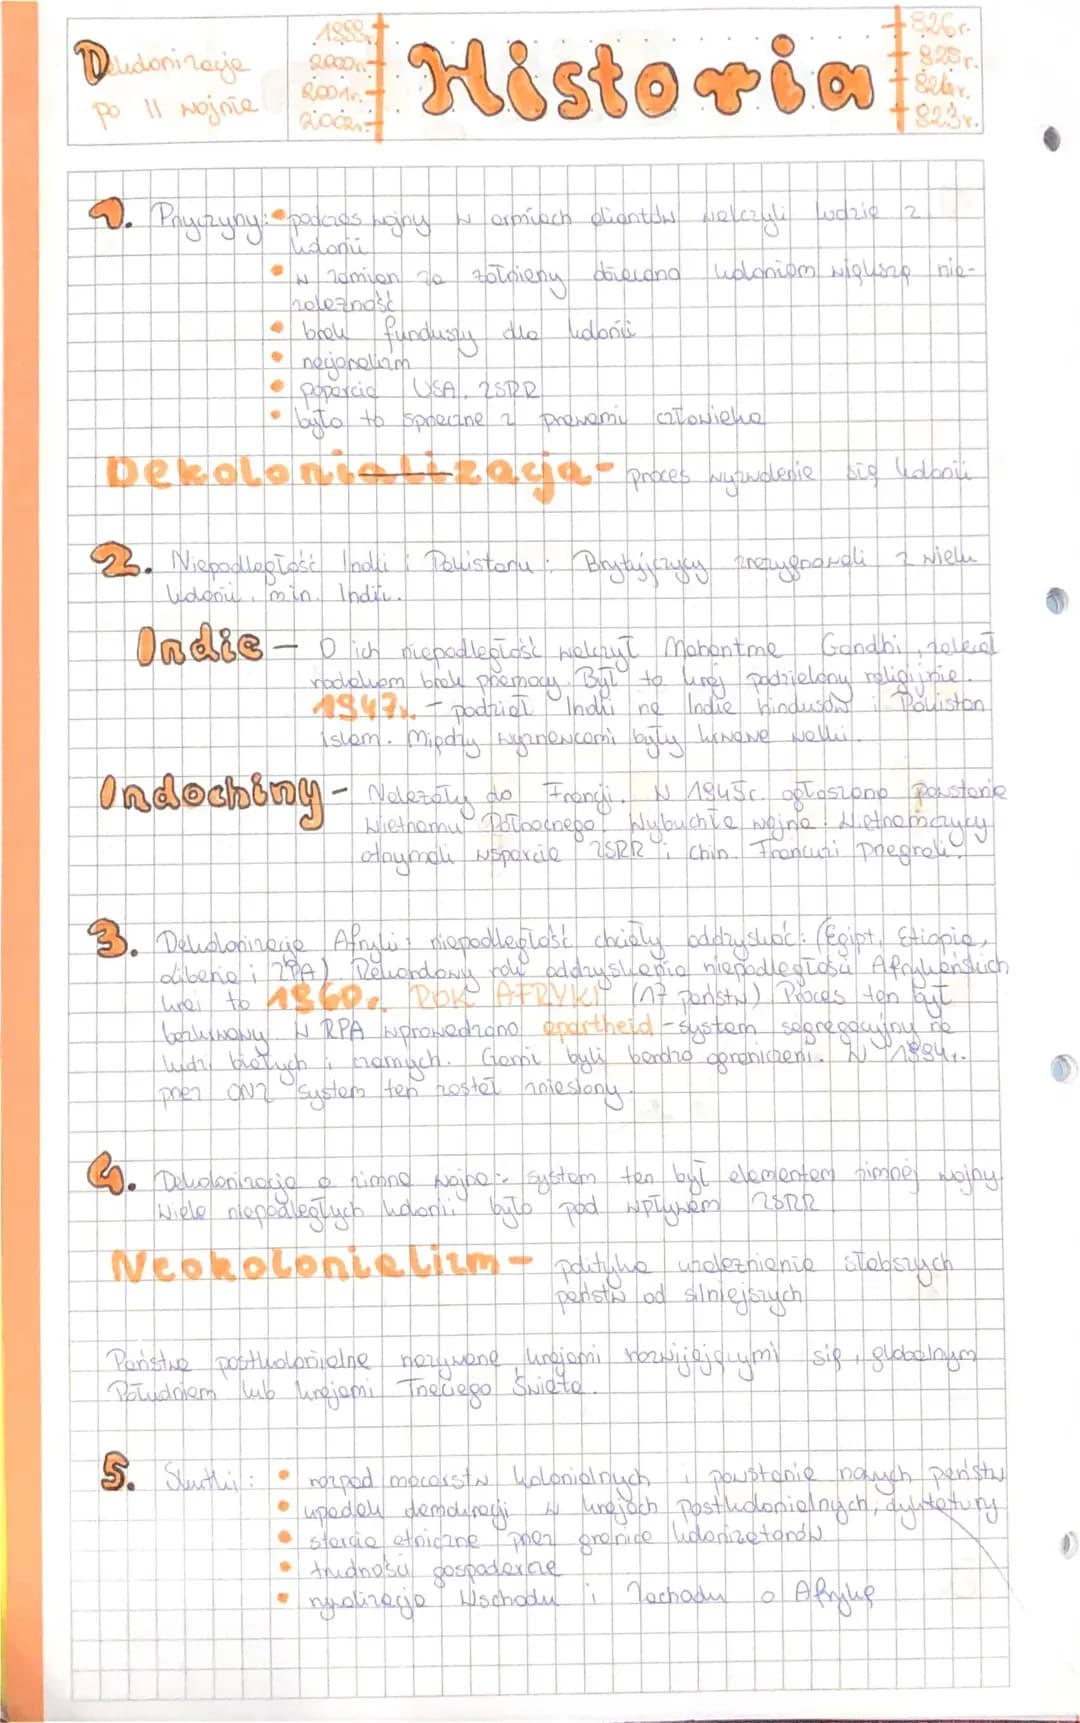 Dekolonizacja
po II wojnie
1999r.
2000r.
2001r.
2002r.
Historia
826r.
825r.
824r.
823r.
1. Przyczyny: • podczas wojny w armiach aliantów walczyli ludzie z
kolonii
• w zamian za żołnierzy obiecano koloniom większą nie-
zależność
• brak funduszy dla kolonii
• nacjonalizm
• poparcie USA, ZSRR
• było to sprzeczne z prawami człowieka
Dekolonializacja - proces wyzwolenia się kolonii
2. Niepodległość Indii i Pakistanu: Brytyjczycy zrezygnowali z wielu
kolonii, min. Indii.
Indie - O ich niepodległość walczył Mahantma Gandhi, zalecał
nadelkom brak przemocy. Był to kraj podzielony religijnie.
1947r. - podział Indii na Indie hindusów i Pakistan
islam. Między wyznawcami były krwawe walki.
Indochiny - Należały do Francji. W 1945r. ogłoszono powstanie
Wietnamu Północnego. Wybuchła wojna. Wietnamczycy
otrzymali wsparcie ZSRR i Chin. Francuzi przegrali.
3. Dekolonizacja Afryki: niepodległość chciały oddzyskać: (Egipt, Etiopia,
Liberia i RPA). Rekordowy rok oddzyskania niepodległości Afrykańskich
krai to 1960r. ROK AFRYKI (17 państw) Proces ten był
bezkrwawy. W RPA wprowadzono apartheid - system segregacyjny na
ludzi białych i czarnych. Czarni byli bardzo ograniczeni. W 1994r.
przez ONZ system ten został zniesiony.
4. Dekolonizacja a zimna wojna: system ten był elementem zimnej wojny.
Wiele niepodległych kolonii było pod wpływem ZSRR
Neokolonializm - polityka uzależnienia słabszych
państw od silniejszych
Państwa postkolonialne nazywane krajami rozwijającymi się, globalnym
Południem lub krajami Trzeciego Świata.
5. Skutki: • rozpad mocarstw kolonialnych i powstanie nowych państw
• upadek demokracji w krajach postkolonialnych, dyktatury
• starcia etniczne przez granice kolonizatorów
• trudności gospodarcze
• rywalizacja Wschodu i Zachodu o Afrykę